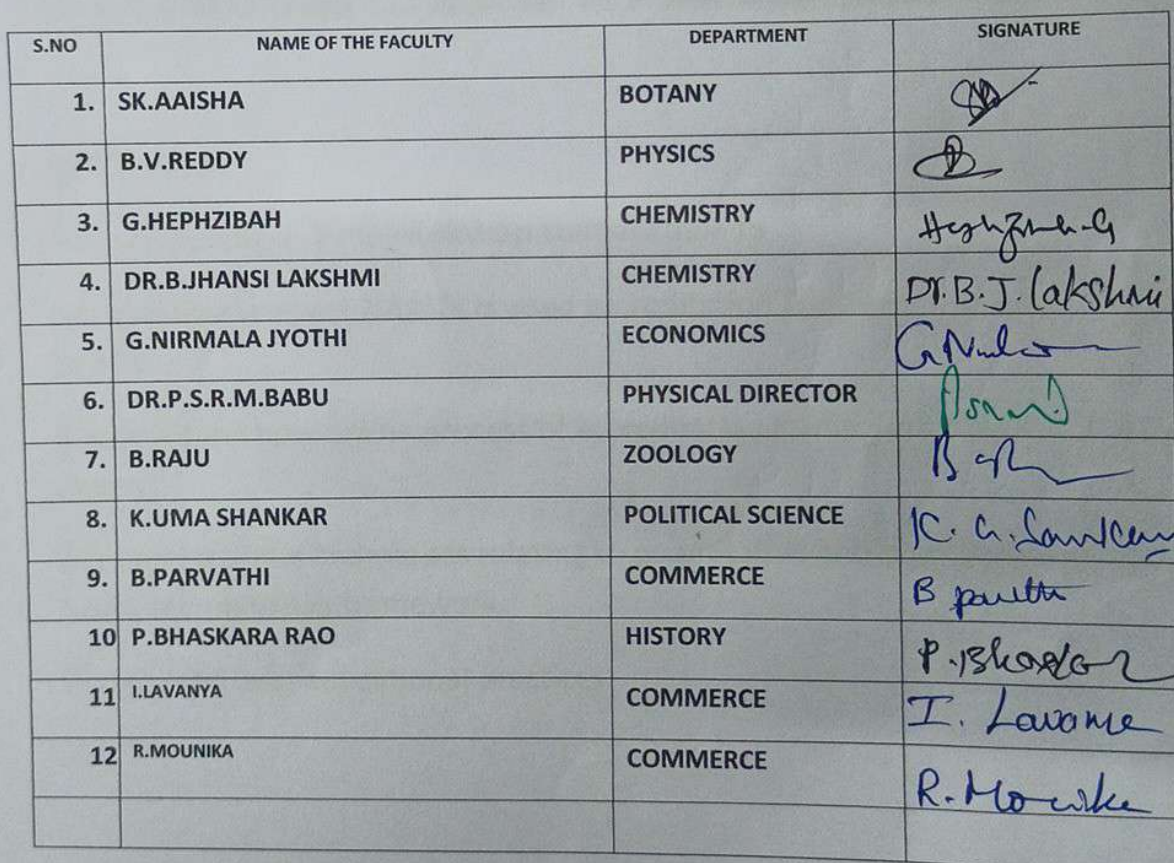 S.NO NAME OF THE FACULTY DEPARTMENT SIGNATURE
1. SK.AAISHA BOTANY
2. B.V.REDDY PHYSICS
3. G.HEPHZIBAH CHEMISTRY
4. DR.B.JHANSI LAKSHMI CHEMISTRY Dr.B.J.Lakshmi
5. G.NIRMALA JYOTHI ECONOMICS
6. DR.P.S.R.M.BABU PHYSICAL DIRECTOR
7. B.RAJU ZOOLOGY
8. K.UMA SHANKAR POLITICAL SCIENCE
9. B.PARVATHI COMMERCE
10 P.BHASKARA RAO HISTORY
11 I.LAVANYA COMMERCE
12 R.MOUNIKA COMMERCE